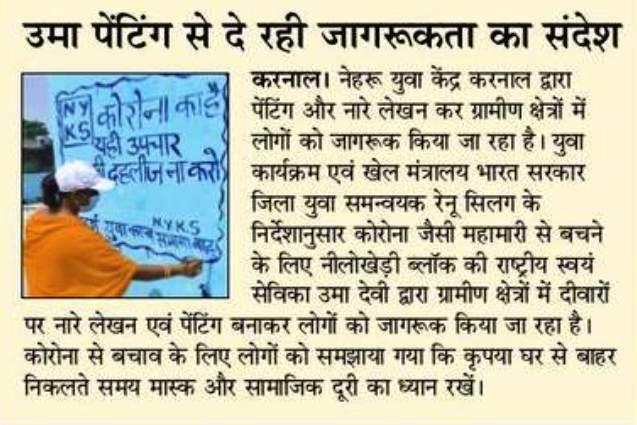 उमा पेंटिंग से दे रही जागरूकता का संदेश
NY
KS
कोरोना का है
यही उपचार
दहलीज ना करो
NYKS
करनाल। नेहरू युवा केंद्र करनाल द्वारा
पेंटिंग और नारे लेखन कर ग्रामीण क्षेत्रों में
लोगों को जागरूक किया जा रहा है। युवा
कार्यक्रम एवं खेल मंत्रालय भारत सरकार
जिला युवा समन्वयक रेनू सिलग के
निर्देशानुसार कोरोना जैसी महामारी से बचने
के लिए नीलोखेड़ी ब्लॉक की राष्ट्रीय स्वयं
सेविका उमा देवी द्वारा ग्रामीण क्षेत्रों में दीवारों
पर नारे लेखन एवं पेंटिंग बनाकर लोगों को जागरूक किया जा रहा है।
कोरोना से बचाव के लिए लोगों को समझाया गया कि कृपया घर से बाहर
निकलते समय मास्क और सामाजिक दूरी का ध्यान रखें।